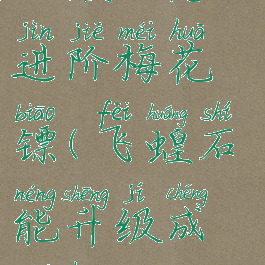 jìn jiē méi huā
进阶梅花
biāo fēi huáng shí
镖(飞蝗石
néng shēng jí chéng
能升级成